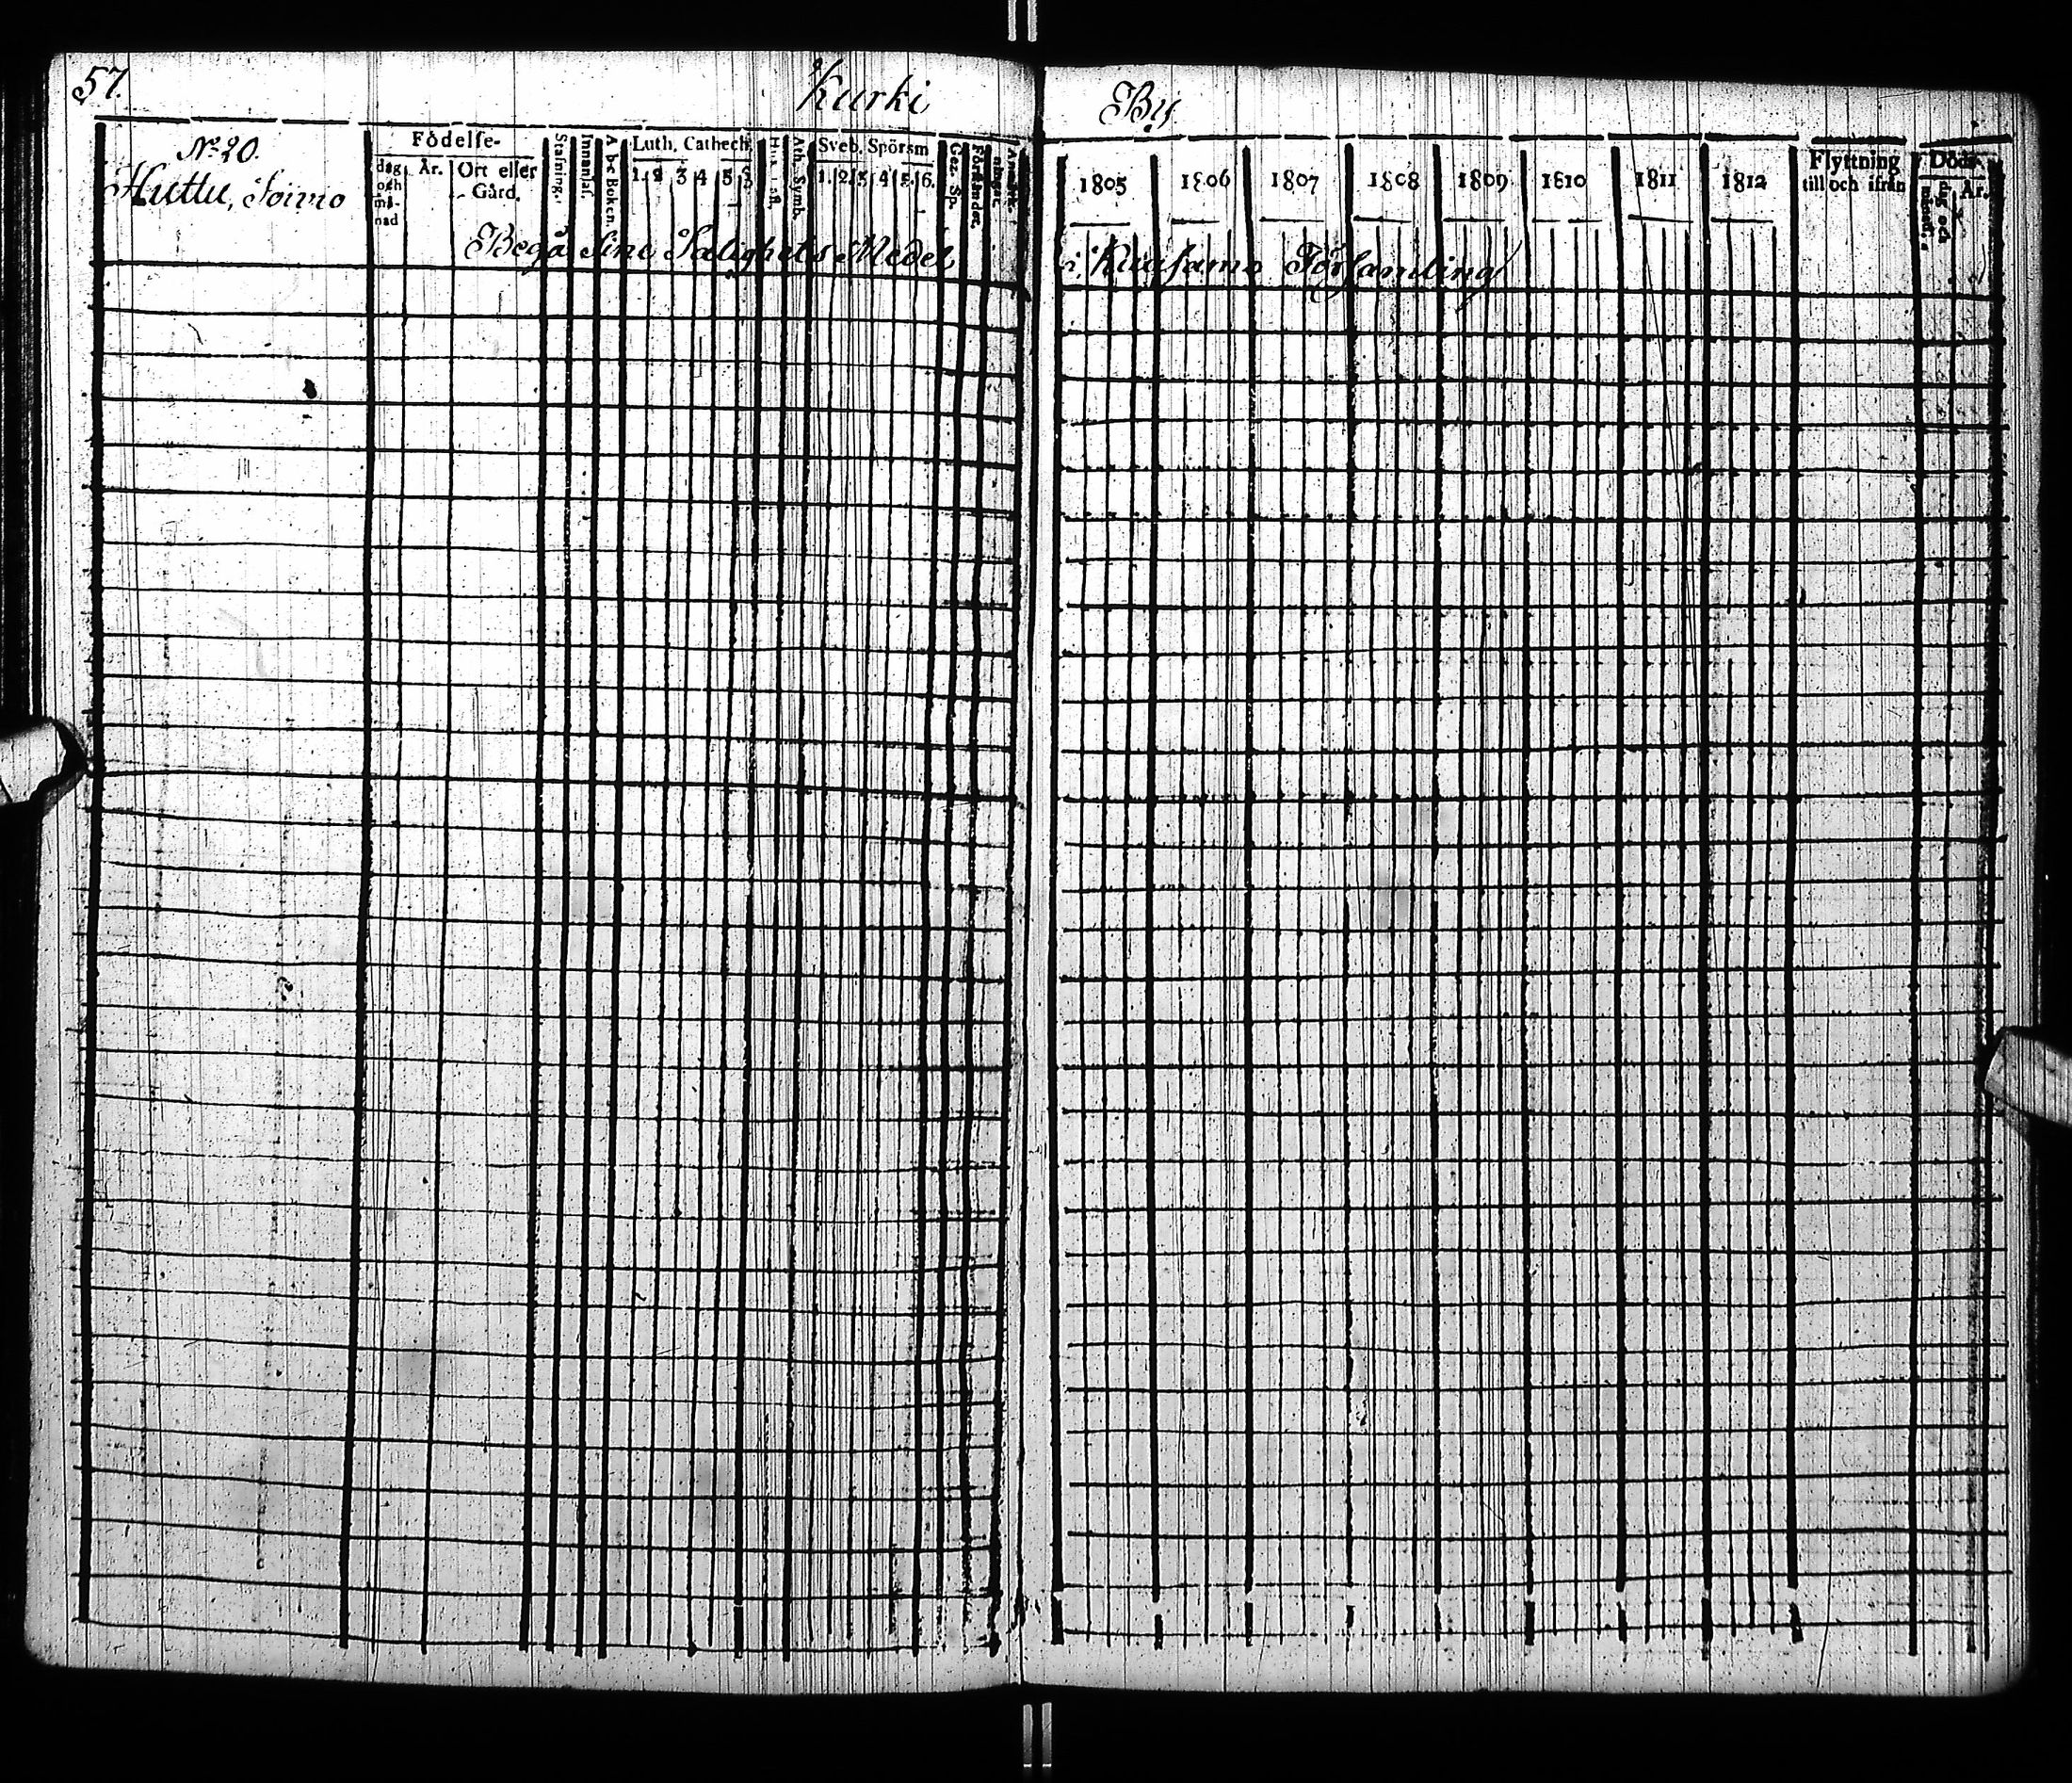 57.
Kurki By
No 20.
Huttu, Soimo
Födelse-
dag och må-nad
År.
Ort eller Gård.
Stafning.
Innanläs.
A b c Boken.
Luth. Cathech.
1. 2 3 4 5
Ath. Symb.
Sveb. Spörsm
1. 2. 3. 4. 5. 6.
Gez. Sp.
Förståndet.
1805 1806 1807 1808 1809 1810 1811 1812
Flyttning
till och ifrån
Döds-
dag och månad.
År.
Begå sine Salighets Medel i Kuusamo Församling